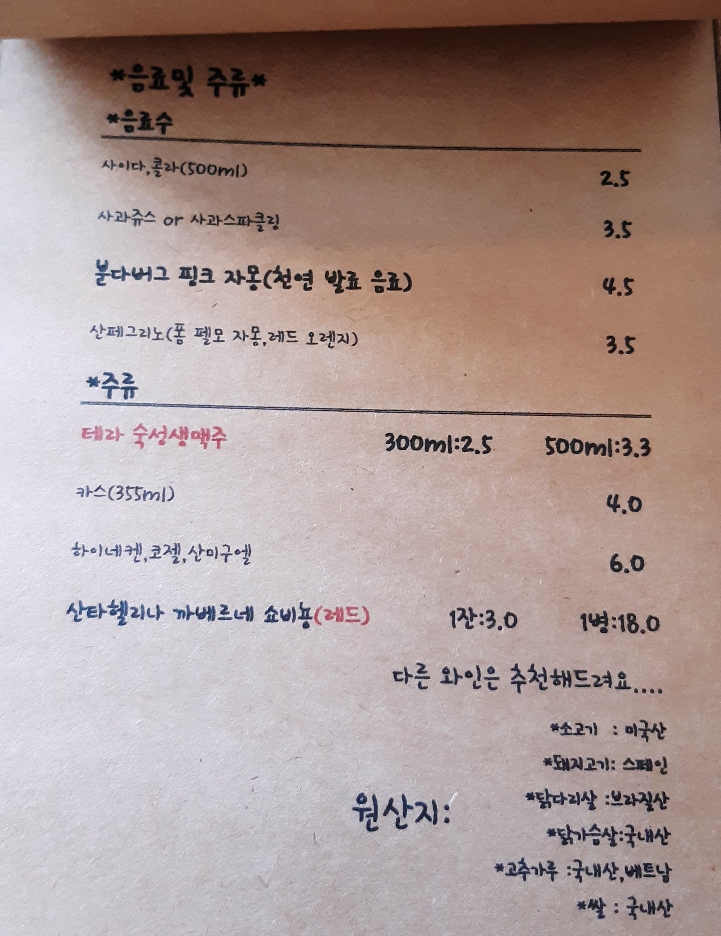 *음료및 주류*
*음료수
사이다,콜라(500ml) 2.5
사과쥬스 or 사과스파클링 3.5
분다버그 핑크 자몽(천연 발효 음료) 4.5
산페그리노(폼 펠모 자몽,레드 오렌지) 3.5
*주류
테라 숙성생맥주 300ml:2.5 500ml:3.3
카스(355ml) 4.0
하이네켄,코젤,산미구엘 6.0
산타헬리나 까베르네 쇼비뇽(레드) 1잔:3.0 1병:18.0
다른 와인은 추천해드려요....
원산지:
*소고기 : 미국산
*돼지고기: 스페인
*닭다리살 :브라질산
*닭가슴살:국내산
*고추가루 :국내산,베트남
*쌀 : 국내산